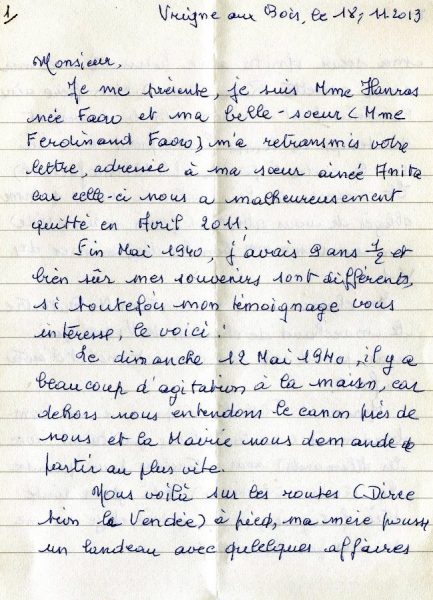 1,
Vrigne aux Bois, le 18, 11.2013
Monsieur,
Je me présente, je suis Mme Hanras
née Faoro et ma belle-soeur (Mme
Ferdinand Faoro) m'a retransmis votre
lettre, adressée à ma soeur ainée Anita
car celle-ci nous a malheureusement
quitté en Avril 2011.
Fin Mai 1940, j'avais 9 ans 1/2 et
bien sûr mes souvenirs sont différents,
si toutefois mon témoignage vous
intéresse, le voici :
Le dimanche 12 Mai 1940, il y a
beaucoup d'agitation à la maison, car
dehors nous entendons le canon près de
nous et la Mairie nous demande de
partir au plus vite.
Nous voilà sur les routes (Direc
tion la Vendée) à pied, ma mère pousse
un landeau avec quelques affaires